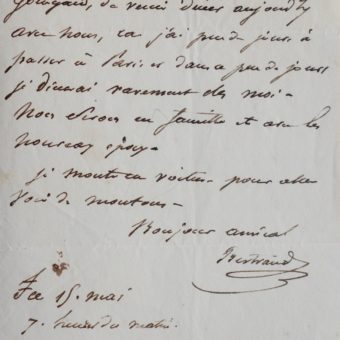 de venir diner aujourd'hy
avec nous, car j'ai peu de jours à
passer à Paris et dans peu de jours
je dinerai rarement chez moi -
Nous serons en famille et avec les
nouveaux époux -
je monte en voiture pour aller
voir de
Bonjour amical
Bertrand
Ce 15. mai
7. heures du matin.